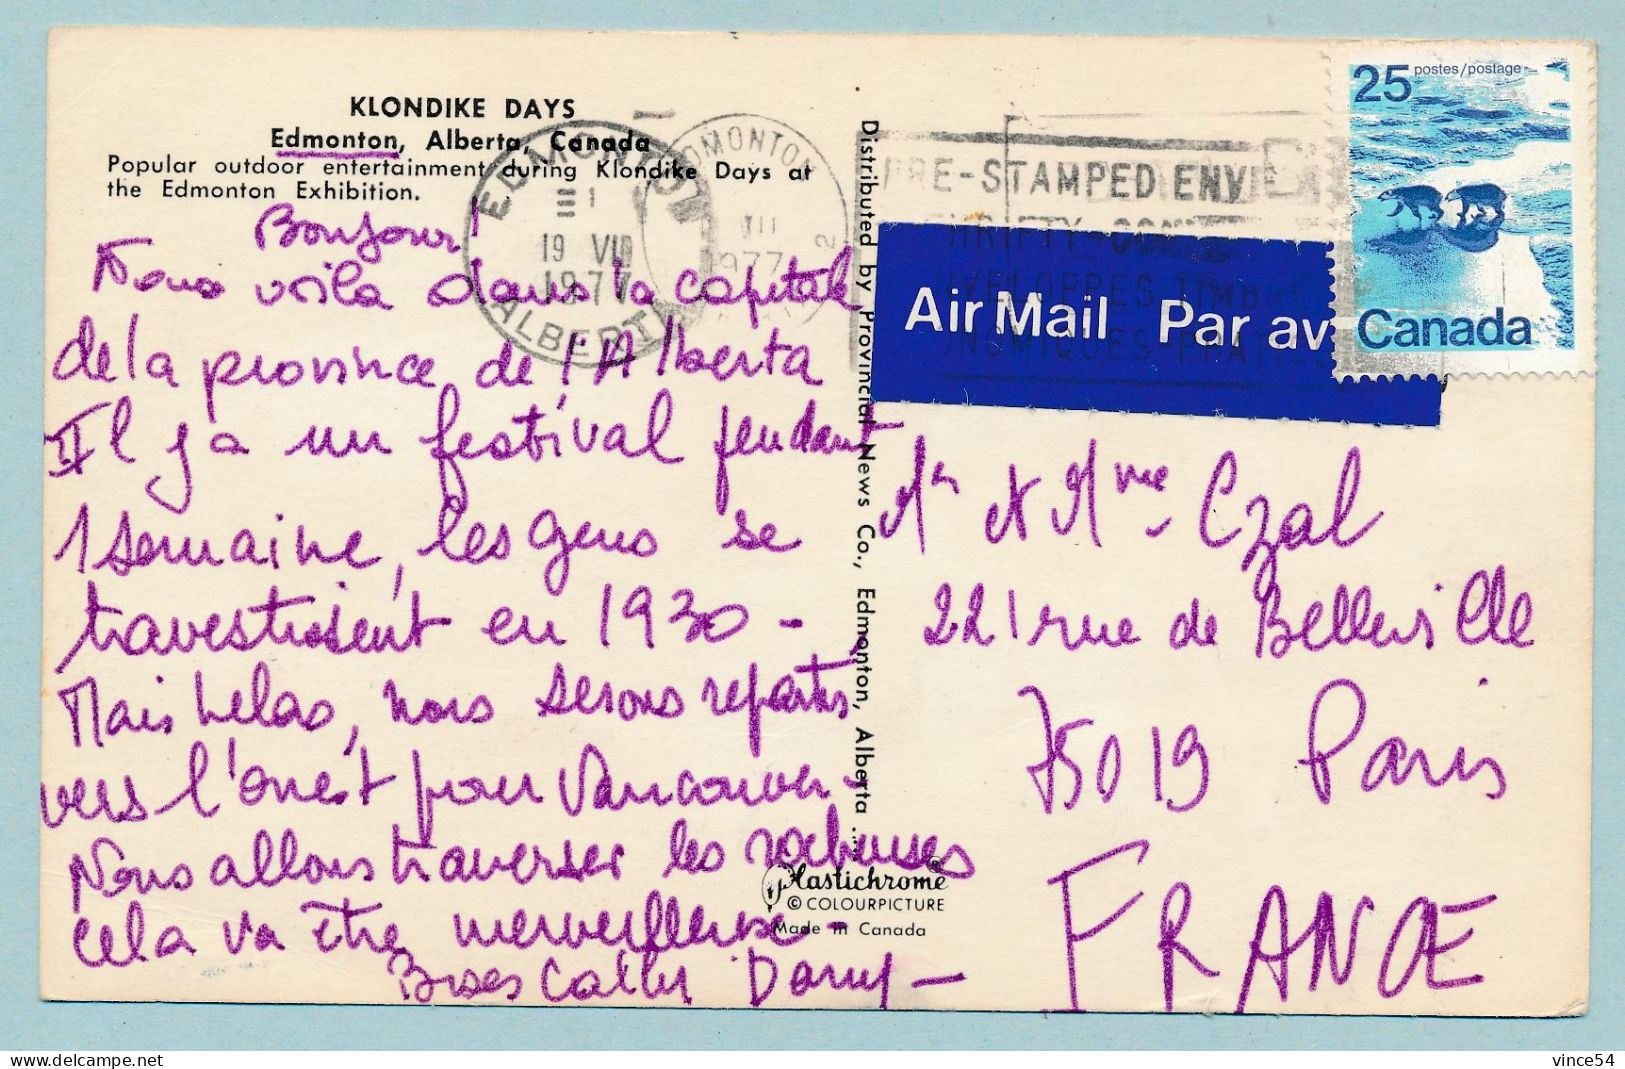 KLONDIKE DAYS
Edmonton, Alberta, Canada
Popular outdoor entertainment during Klondike Days at
the Edmonton Exhibition.
Bonjour!
Nous voila dans la capital
de la province de l'Alberta
Il y a un festival pendant
1 semaine, les gens se
travestissent en 1930 -
Mais helas, nous serons repartis
vers l'ouest pour Vancouver -
Nous allons traverser les rocheuses
cela va être merveilleux -
Bises Cathy Dany -
EDMONTON
19 VII
1977
ALBERTA
EDMONTON
VII
1977
2
PRE-STAMPED ENV
THRIFTY-CON
NVELOPPES TIMB
ONOMIQUES PRA
25 postes/postage
Canada
Air Mail Par av
Mr & Mme Czal
221 rue de Belleville
75019 Paris
FRANCE
Distributed by Provincial News Co., Edmonton, Alberta ...
Plastichrome®
© COLOURPICTURE
Made in Canada
vince54